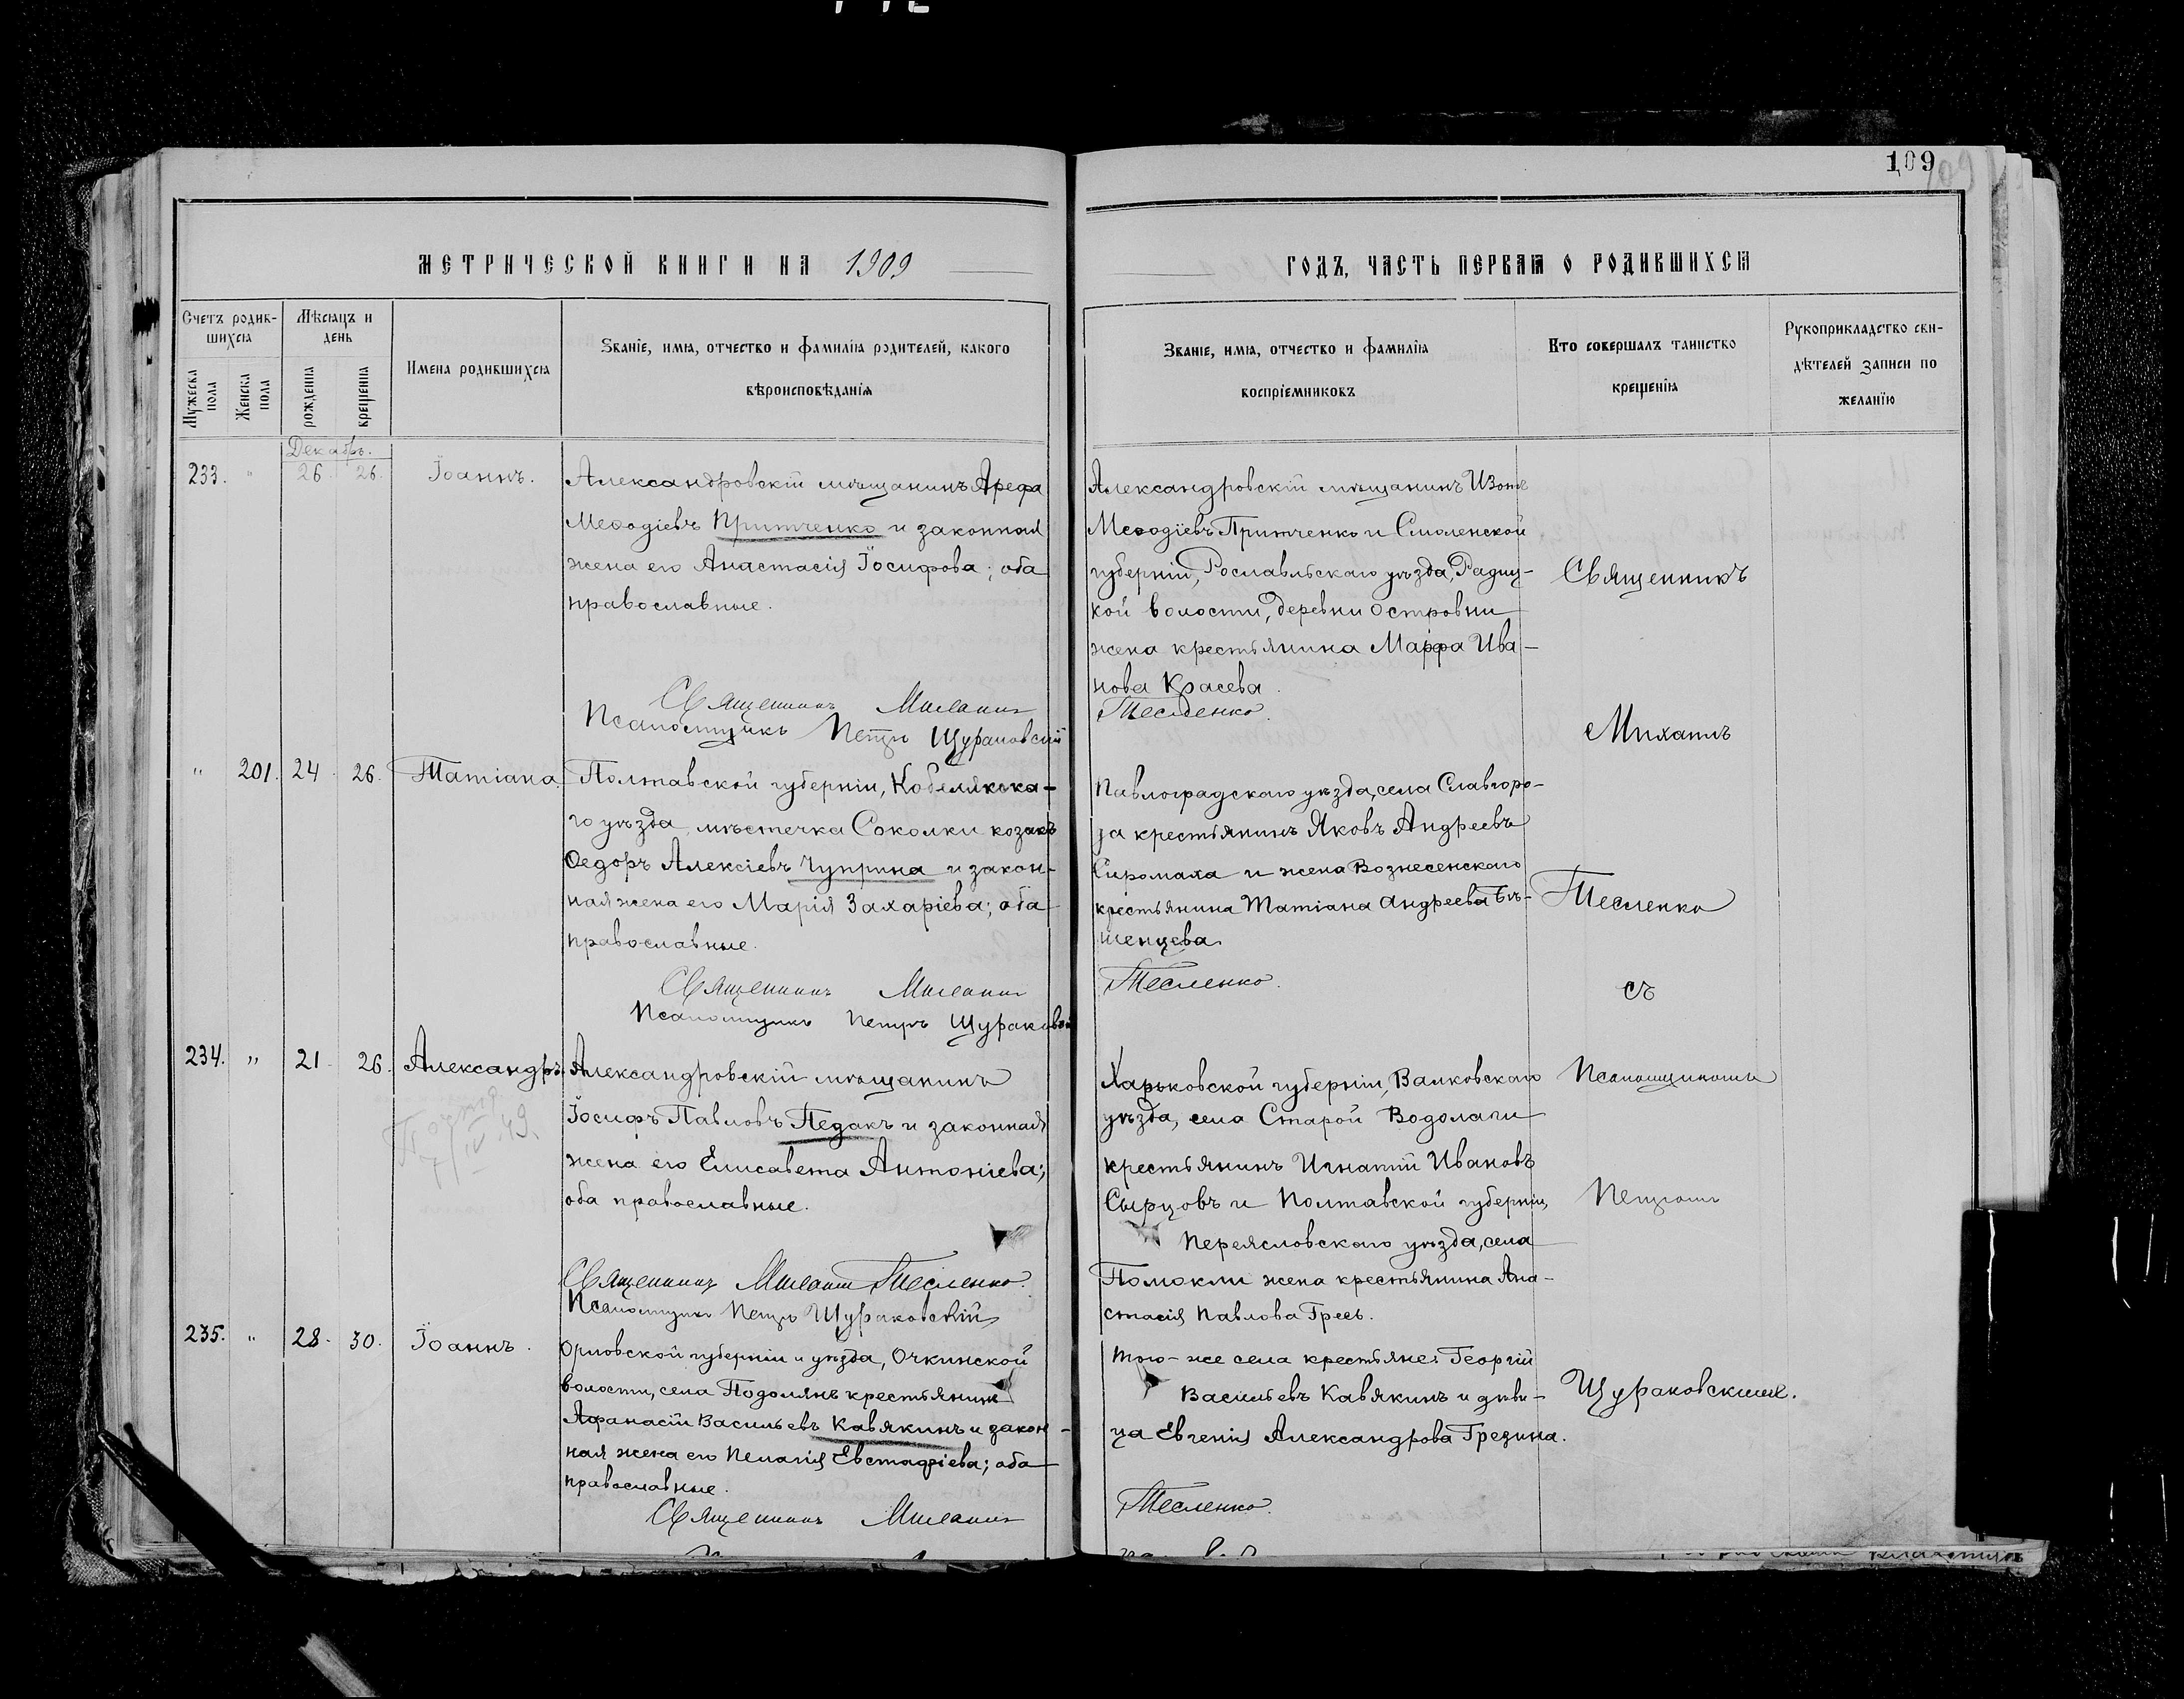 109
МЕТРИЧЕСКОЙ КНИГИ НА 1909
ГОДЪ, ЧАСТЬ ПЕРВАЯ О РОДИВШИХСЯ
Счетъ родив-
шихся
Мѣсяцъ и
день
Мужеска пола
Женска пола
рожденія
крещенія
Имена родившихся
Званіе, имя, отчество и фамилія родителей, какого
вѣроисповѣданія
Званіе, имя, отчество и фамилія
воспріемниковъ
Кто совершалъ таинство
крещенія
Рукоприкладство сви-
дѣтелей записи по
желанію
Декабрь.
233. " 26 26. Іоаннъ.
Александровскій мѣщанинъ Арефа
Меѳодіевъ Притченко и законная
жена его Анастасія Іосифова; оба
православные.
Александровскій мѣщанинъ Изотъ
Меѳодіевъ Притченко и Смоленской
губерніи, Рославльскаго уѣзда,
кой волости, деревни Островни
жена крестьянина Марфа Ива-
нова Красева.
Священникъ Михаилъ Тесленко.
Псаломщикъ Петръ Щураковскій
" 201. 24 26. Татіана.
Полтавской губерніи, Кобелякска-
го уѣзда, мѣстечка Соколки козакъ
Ѳедоръ Алексіевъ Чуприна и закон-
ная жена его Марія Захаріева; оба
православные.
Павлоградскаго уѣзда, села Славгоро-
да крестьянинъ Яковъ Андреевъ
Сиромаха и жена Вознесенскаго
крестьянина Татіана Андреева
шенцева
Священникъ Михаилъ Тесленко.
Псаломщикъ Петръ Щураковскій
234. " 21 26. Александръ.
IV 49.
Александровскій мѣщанинъ
Іосифъ Павловъ Педакъ и законная
жена его Елисавета Антоніева;
оба православные.
Харьковской губерніи, Валковскаго
уѣзда, села Старой Водолаги
крестьянинъ Игнатій Ивановъ
Сырцовъ и Полтавской губерніи,
Переясловскаго уѣзда, села
Помокли жена крестьянина Ана-
стасія Павлова
Священникъ Михаилъ Тесленко.
Псаломщикъ Петръ Щураковскій
235. " 28. 30. Іоаннъ.
Орловской губерніи и уѣзда, Очкинской
волости, села Подолянъ крестьянинъ
Афанасій Васильевъ Кавякинъ и закон-
ная жена его Пелагія Евстафіева; оба
православные.
Того-же села крестьяне: Георгій
Васильевъ Кавякинъ и дѣви-
ца Евгенія Александрова Грезина.
Священникъ Михаилъ Тесленко.
Священникъ
Михаилъ
Тесленко
съ
Псаломщикомъ
Петромъ
Щураковскимъ.